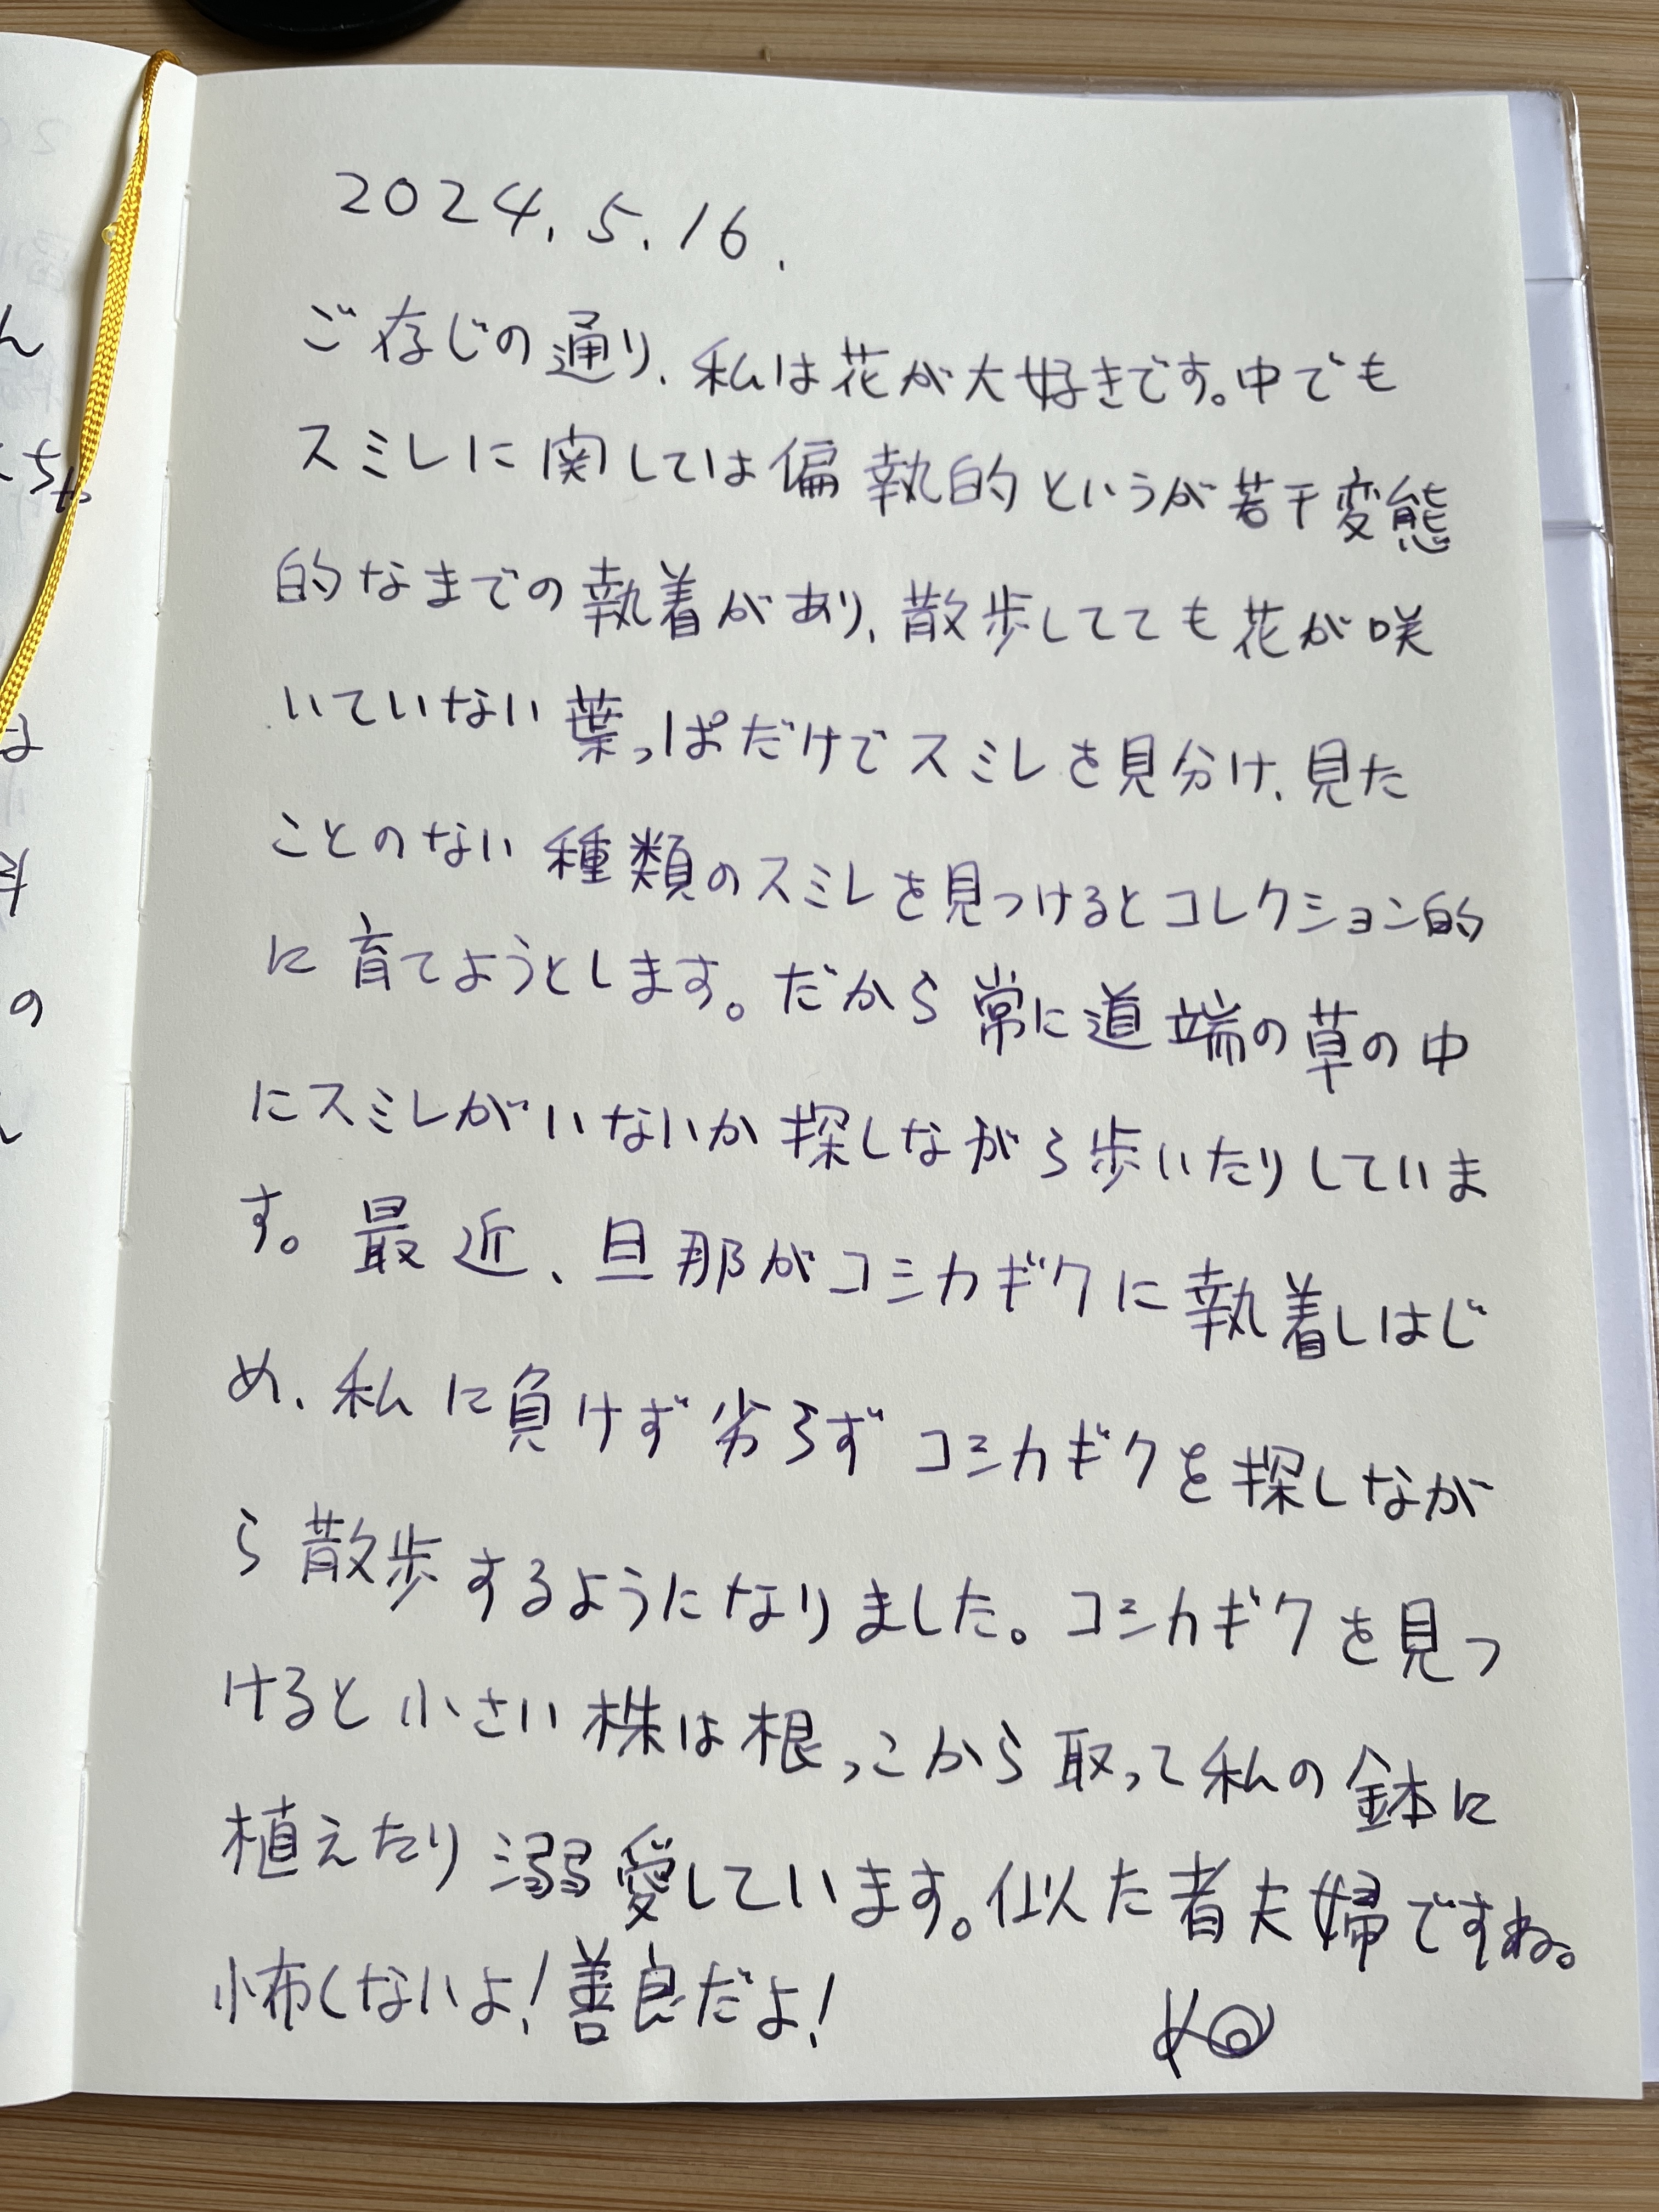 2024.5.16.
ご存じの通り、私は花が大好きです。中でも
スミレに関しては偏執的というか若干変態
的なまでの執着があり、散歩してても花が咲
いていない葉っぱだけでスミレを見分け、見た
ことのない種類のスミレを見つけるとコレクション的
に育てようとします。だから常に道端の草の中
にスミレがいないか探しながら歩いたりしていま
す。最近、旦那がコシカギクに執着しはじ
め、私に負けず劣らずコシカギクを探しなが
ら散歩するようになりました。コシカギクを見つ
けると小さい株は根っこから取って私の鉢に
植えたり溺愛しています。似た者夫婦ですね。
怖くないよ！善良だよ！
ん
ちゃ
よ
の